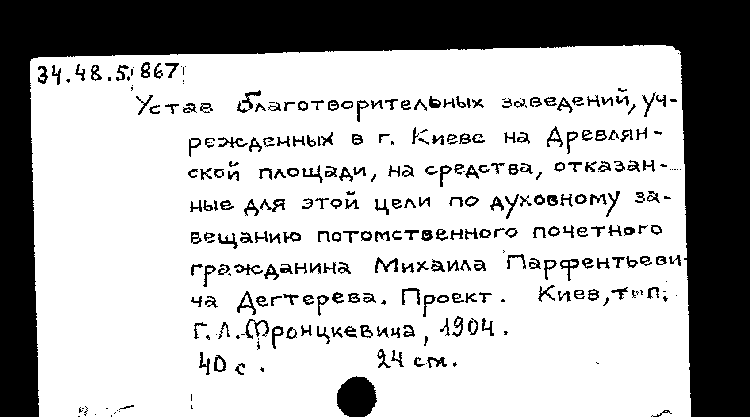 34.48.5. 867
Устав благотворительных заведений, уч-
режденных в г. Киеве на Древлян-
ской площади, на средства, отказан-
ные для этой цели по духовному за-
вещанию потомственного почетного
гражданина Михаила Парфентьеви-
ча Дегтерева. Проект. Киев, тип.
Г. Л. Фронцкевича, 1904.
40 с. 24 см.